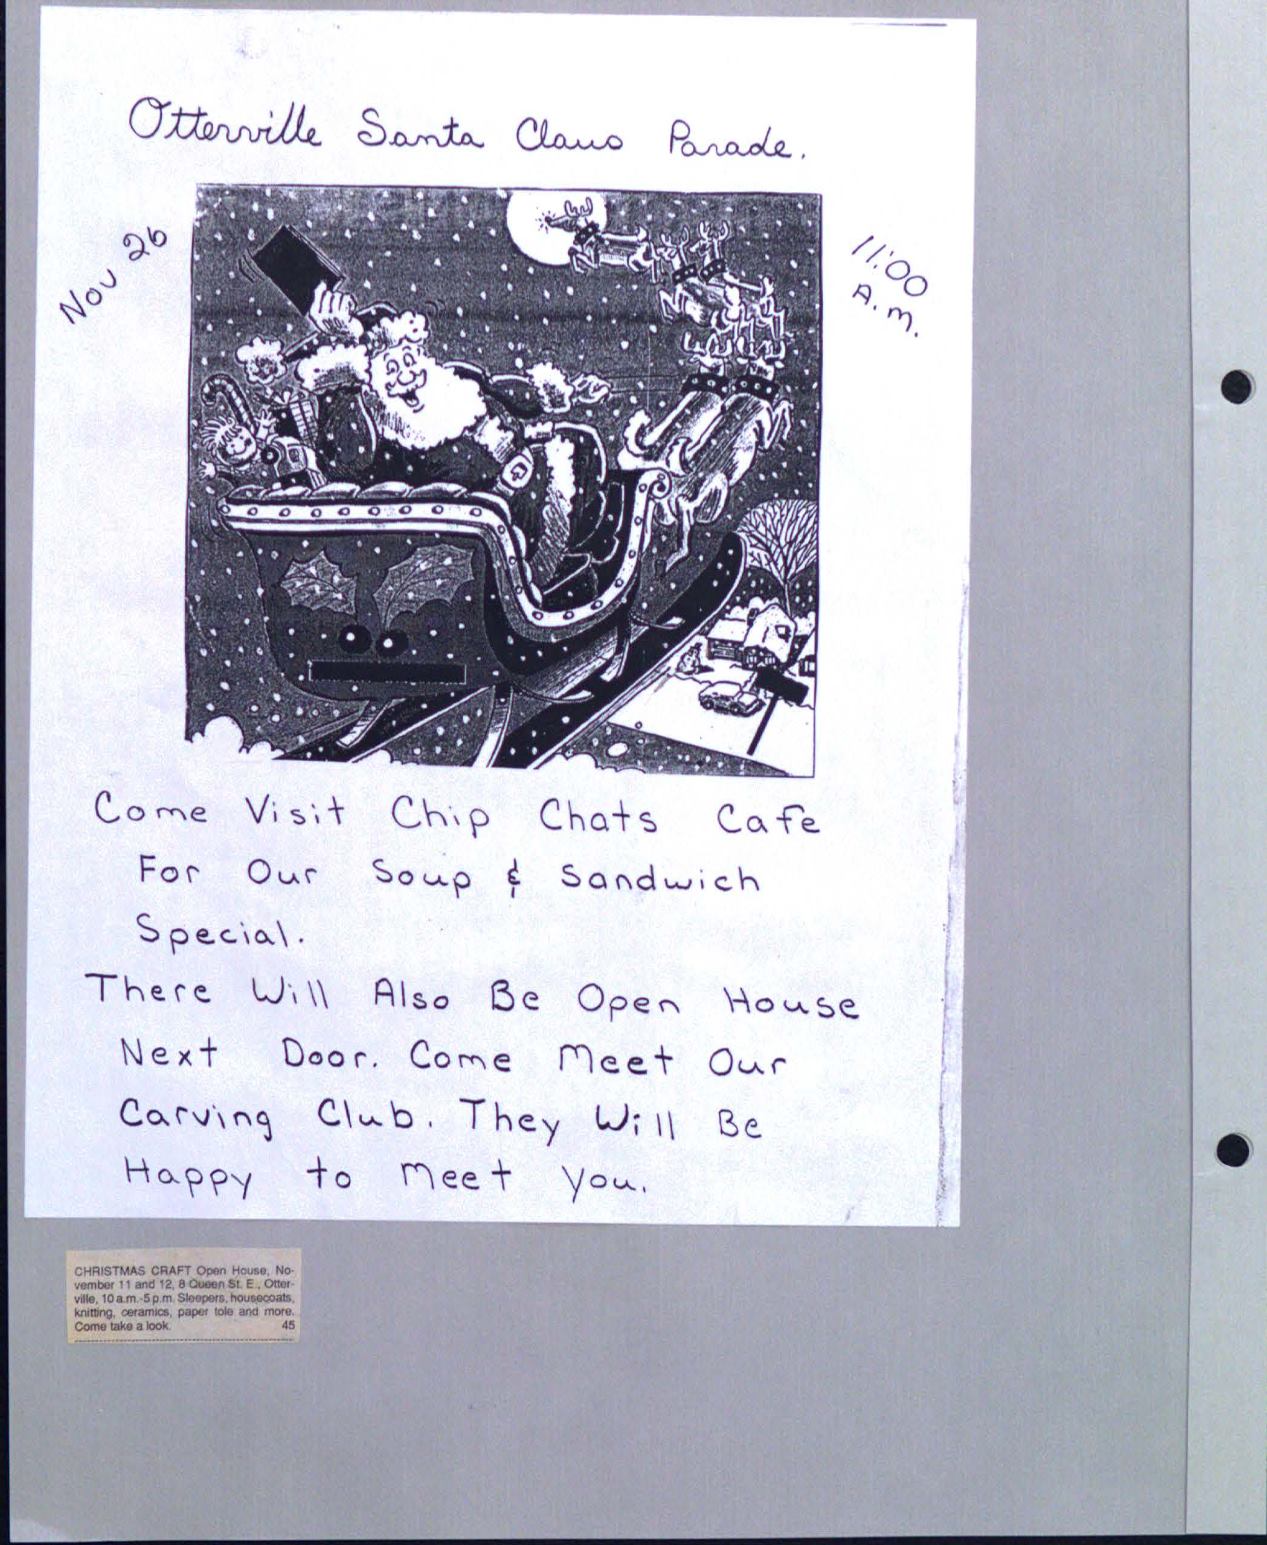 Otterville Santa Claus Parade.
Nov 26
11:00
A.m.
Come Visit Chip Chats Cafe
For Our Soup & Sandwich
Special.
There Will Also Be Open House
Next Door. Come Meet Our
Carving Club. They Will Be
Happy to Meet You.
CHRISTMAS CRAFT Open House, No-
vember 11 and 12, 8 Queen St. E., Otter-
ville, 10 a.m.-5 p.m. Sleepers, housecoats,
knitting, ceramics, paper tole and more.
Come take a look. 45